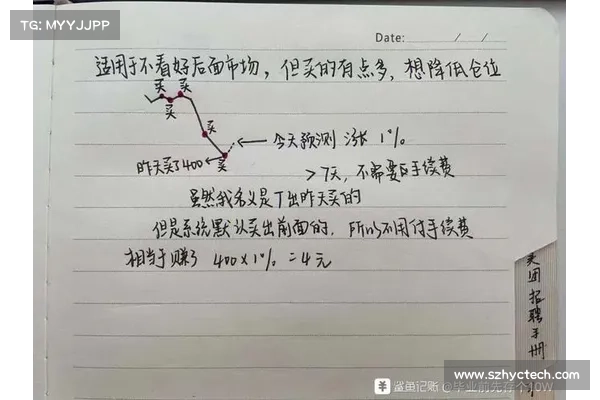 TG: MYYJJPP
Date: / /
适用于不看好后面市场，但买的有点多，想降低仓位
买 买
买
买
今天预测 涨 1%
昨天买了400
买
>7天，不需要的手续费
虽然我名义是T出昨天买的
但是系统默认卖出前面的，所以不用付手续费
相当于赚了 400×1% =4元
美团招聘手册
鲨鱼记账 @毕业前先存个10W
www.szhyctech.com